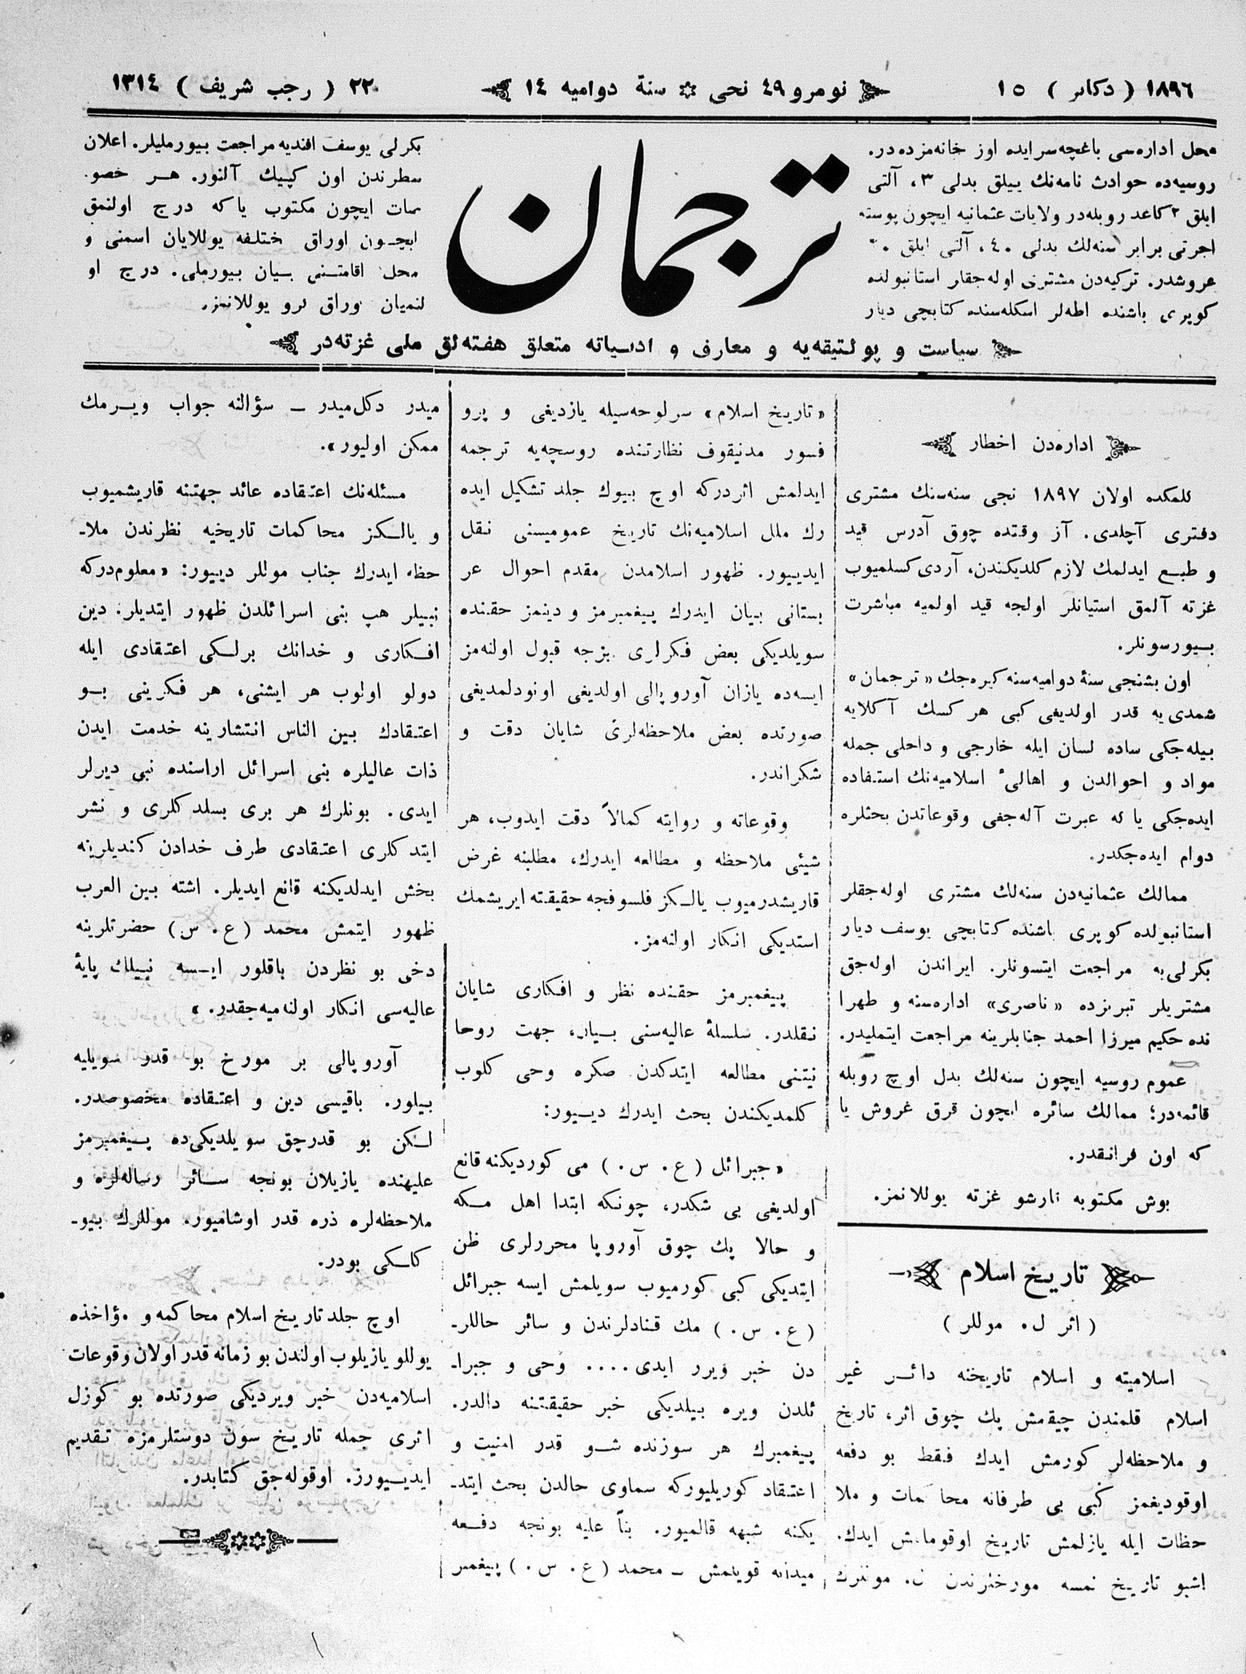 ١٨٩٦ ( دكابر ) ١٥
نومرو ٤٩ نجى سنۀ دواميه ١٤
٢٢ ( رجب شريف ) ١٣١٤
محل اداره‌سى باغچه‌سرايده اوز خانه‌مزده‌در.
روسيه‌ده حوادث نامه‌نك ييلق بدلى ٣، آلتى
ايلق ٢ كاغد روبله‌در ولايات عثمانيه ايچون پوسته
اجرتى برابر سنه‌لك بدلى ٤٠، آلتى ايلق
غروشدر. تركيه‌دن مشترى اوله‌جقلر استانبولده
كوپرى باشنده اطه‌لر اسكله‌سنده كتابچى ديار
ترجمان
بكرلى يوسف افنديه مراجعت بيورمليلر. اعلان
سطرندن اون كپيك آلنور. هر خصو
صات ايچون مكتوب ياكه درج اولنمق
ايچون اوراق مختلفه يوللايان اسمنى و
محل اقامتنى بيان بيورملى. درج او
لنميان اوراق كرو يوللانمز.
سياست و پولتيقه‌يه و معارف و ادبياته متعلق هفته‌لق ملى غزته‌در
اداره‌دن اخطار
كلمكده اولان ١٨٩٧ نجى سنه‌سنك مشترى
دفترى آچلدى. آز وقتده چوق آدرس قيد
و طبع ايدلمك لازم كلديكندن، آردى كسلميوب
غزته آلمق استيانلر اولجه قيد اولميه مباشرت
بيورسونلر.
اون بشنجى سنۀ دواميه‌سنه كيره‌جك «ترجمان»
شمدى‌يه قدر اولديغى كبى هر كسك آكلايه
بيله‌جكى ساده لسان ايله خارجى و داخلى جمله
مواد و احوالدن و اهالىٔ اسلاميه‌نك استفاده
ايده‌جكى يا له عبرت آله‌جغى وقوعاتدن بحثلره
دوام ايده‌جكدر.
ممالك عثمانيه‌دن سنه‌لك مشترى اوله‌جقلر
استانبولده كوپرى باشنده كتابچى يوسف ديار
بكرلى‌يه مراجعت ايتسونلر. ايراندن اوله‌جق
مشتريلر تبريزده «ناصرى» اداره‌سنه و طهرا
نده حكيم ميرزا احمد جنابلرينه مراجعت ايتمليدر.
عموم روسيه ايچون سنه‌لك بدل اوچ روبله
قائمه‌در؛ ممالك سائره ايچون قرق غروش يا
كه اون فرانقدر.
بوش مكتوبه قارشو غزته يوللانمز.
تاريخ اسلام
( اثر ل. موللر )
اسلاميته و اسلام تاريخنه دائر غير
اسلام قلمندن چيقمش پك چوق اثر، تاريخ
و ملاحظه‌لر كورمش ايدك فقط بو دفعه
اوقوديغمز كبى بى طرفانه محاكمات و ملا
حظات ايله يازلمش تاريخ اوقومامش ايدك.
اشبو تاريخ نمسه مورخلرندن ل. موللرك
«تاريخ اسلام» سرلوحه‌سيله يازديغى و پرو
فسور مدنيقوف نظارتنده روسچه‌يه ترجمه
ايدلمش اثردركه اوچ بيوك جلد تشكيل ايده
رك ملل اسلاميه‌نك تاريخ عموميسنى نقل
ايدييور. ظهور اسلامدن مقدم احوال عر
بستانى بيان ايدرك پيغمبرمز و دينمز حقنده
سويلديكى بعض فكرلرى بزجه قبول اولنه‌مز
ايسه‌ده يازان آوروپالى اولديغى اونودلمديغى
صورتده بعض ملاحظه‌لرى شايان دقت و
شكراندر.
وقوعاته و روايته كمالاً دقت ايدوب، هر
شيئى ملاحظه و مطالعه ايدرك، مطلبنه غرض
قاريشدرميوب يالكز فلسوفجه حقيقته ايريشمك
استديكى انكار اولنه‌مز.
پيغمبرمز حقنده نظر و افكارى شايان
نقلدر. سلسلۀ عاليه‌سنى بيان، جهت روحا
نيتنى مطالعه ايتدكدن صكره وحى كلوب
كلمديكندن بحث ايدرك دييور:
«جبرائل (ع. س.) مى كورديكنه قانع
اولديغى بى شكدر، چونكه ابتدا اهل مكه
و حالا پك چوق آوروپا محررلرى ظن
ايتديكى كبى كورميوب سويلمش ايسه جبرائل
(ع. س.) مك قنادلرندن و سائر حاللر-
دن خبر ويرر ايدى.... وحى و جبرا-
ئلدن ويره بيلديكى خبر حقيقتنه دالدر.
پيغمبرك هر سوزنده شو قدر امنيت و
اعتقاد كوريليوركه سماوى حالدن بحث ايتد-
يكنه شبهه قالميور. بناً عليه بونجه دفعه
ميدانه قويلمش ـ محمد (ع. س.) پيغمبر
ميدر دكل‌ميدر ـ سؤالنه جواب ويرمك
ممكن اوليور».
مسئله‌نك اعتقاده عائد جهتنه قاريشميوب
و يالكز محاكمات تاريخيه نظرندن ملا-
حظه ايدرك جناب موللر دييور: «معلوم‌دركه
نبييلر هپ بنى اسرائلدن ظهور ايتديلر. دين
افكارى و خدانك برلكى اعتقادى ايله
دولو اولوب هر ايشنى، هر فكرينى بو
اعتقادك بين الناس انتشارينه خدمت ايدن
ذات عاليلره بنى اسرائل اراسنده نبى ديرلر
ايدى. بونلرك هر برى بسلدكلرى و نشر
ايتدكلرى اعتقادى طرف خدادن كنديلرينه
بخش ايدلديكنه قانع ايديلر. اشته بين العرب
ظهور ايتمش محمد (ع. س) حضرتلرينه
دخى بو نظردن باقلور ايسه نبيلك پايۀ
عاليه‌سى انكار اولنه‌ميه‌جقدر.»
آوروپالى بر مورخ بو قدر سويليه
بيلور. باقيسى دين و اعتقاده مخصوصدر.
لكن بو قدرجق سويلديكى‌ده پيغمبرمز
عليهنده يازيلان بونجه سائر رساله‌لره و
ملاحظه‌لره ذره قدر اوشاميور. موللرك بيو-
كلكى بودر.
اوچ جلد تاريخ اسلام محاكمه و مؤاخذه
يوللو يازيلوب اولندن بو زمانه قدر اولان وقوعات
اسلاميه‌دن خبر ويرديكى صورتده بو كوزل
اثرى جمله تاريخ سون دوستلرمزه تقديم
ايدييورز. اوقوله‌جق كتابدر.